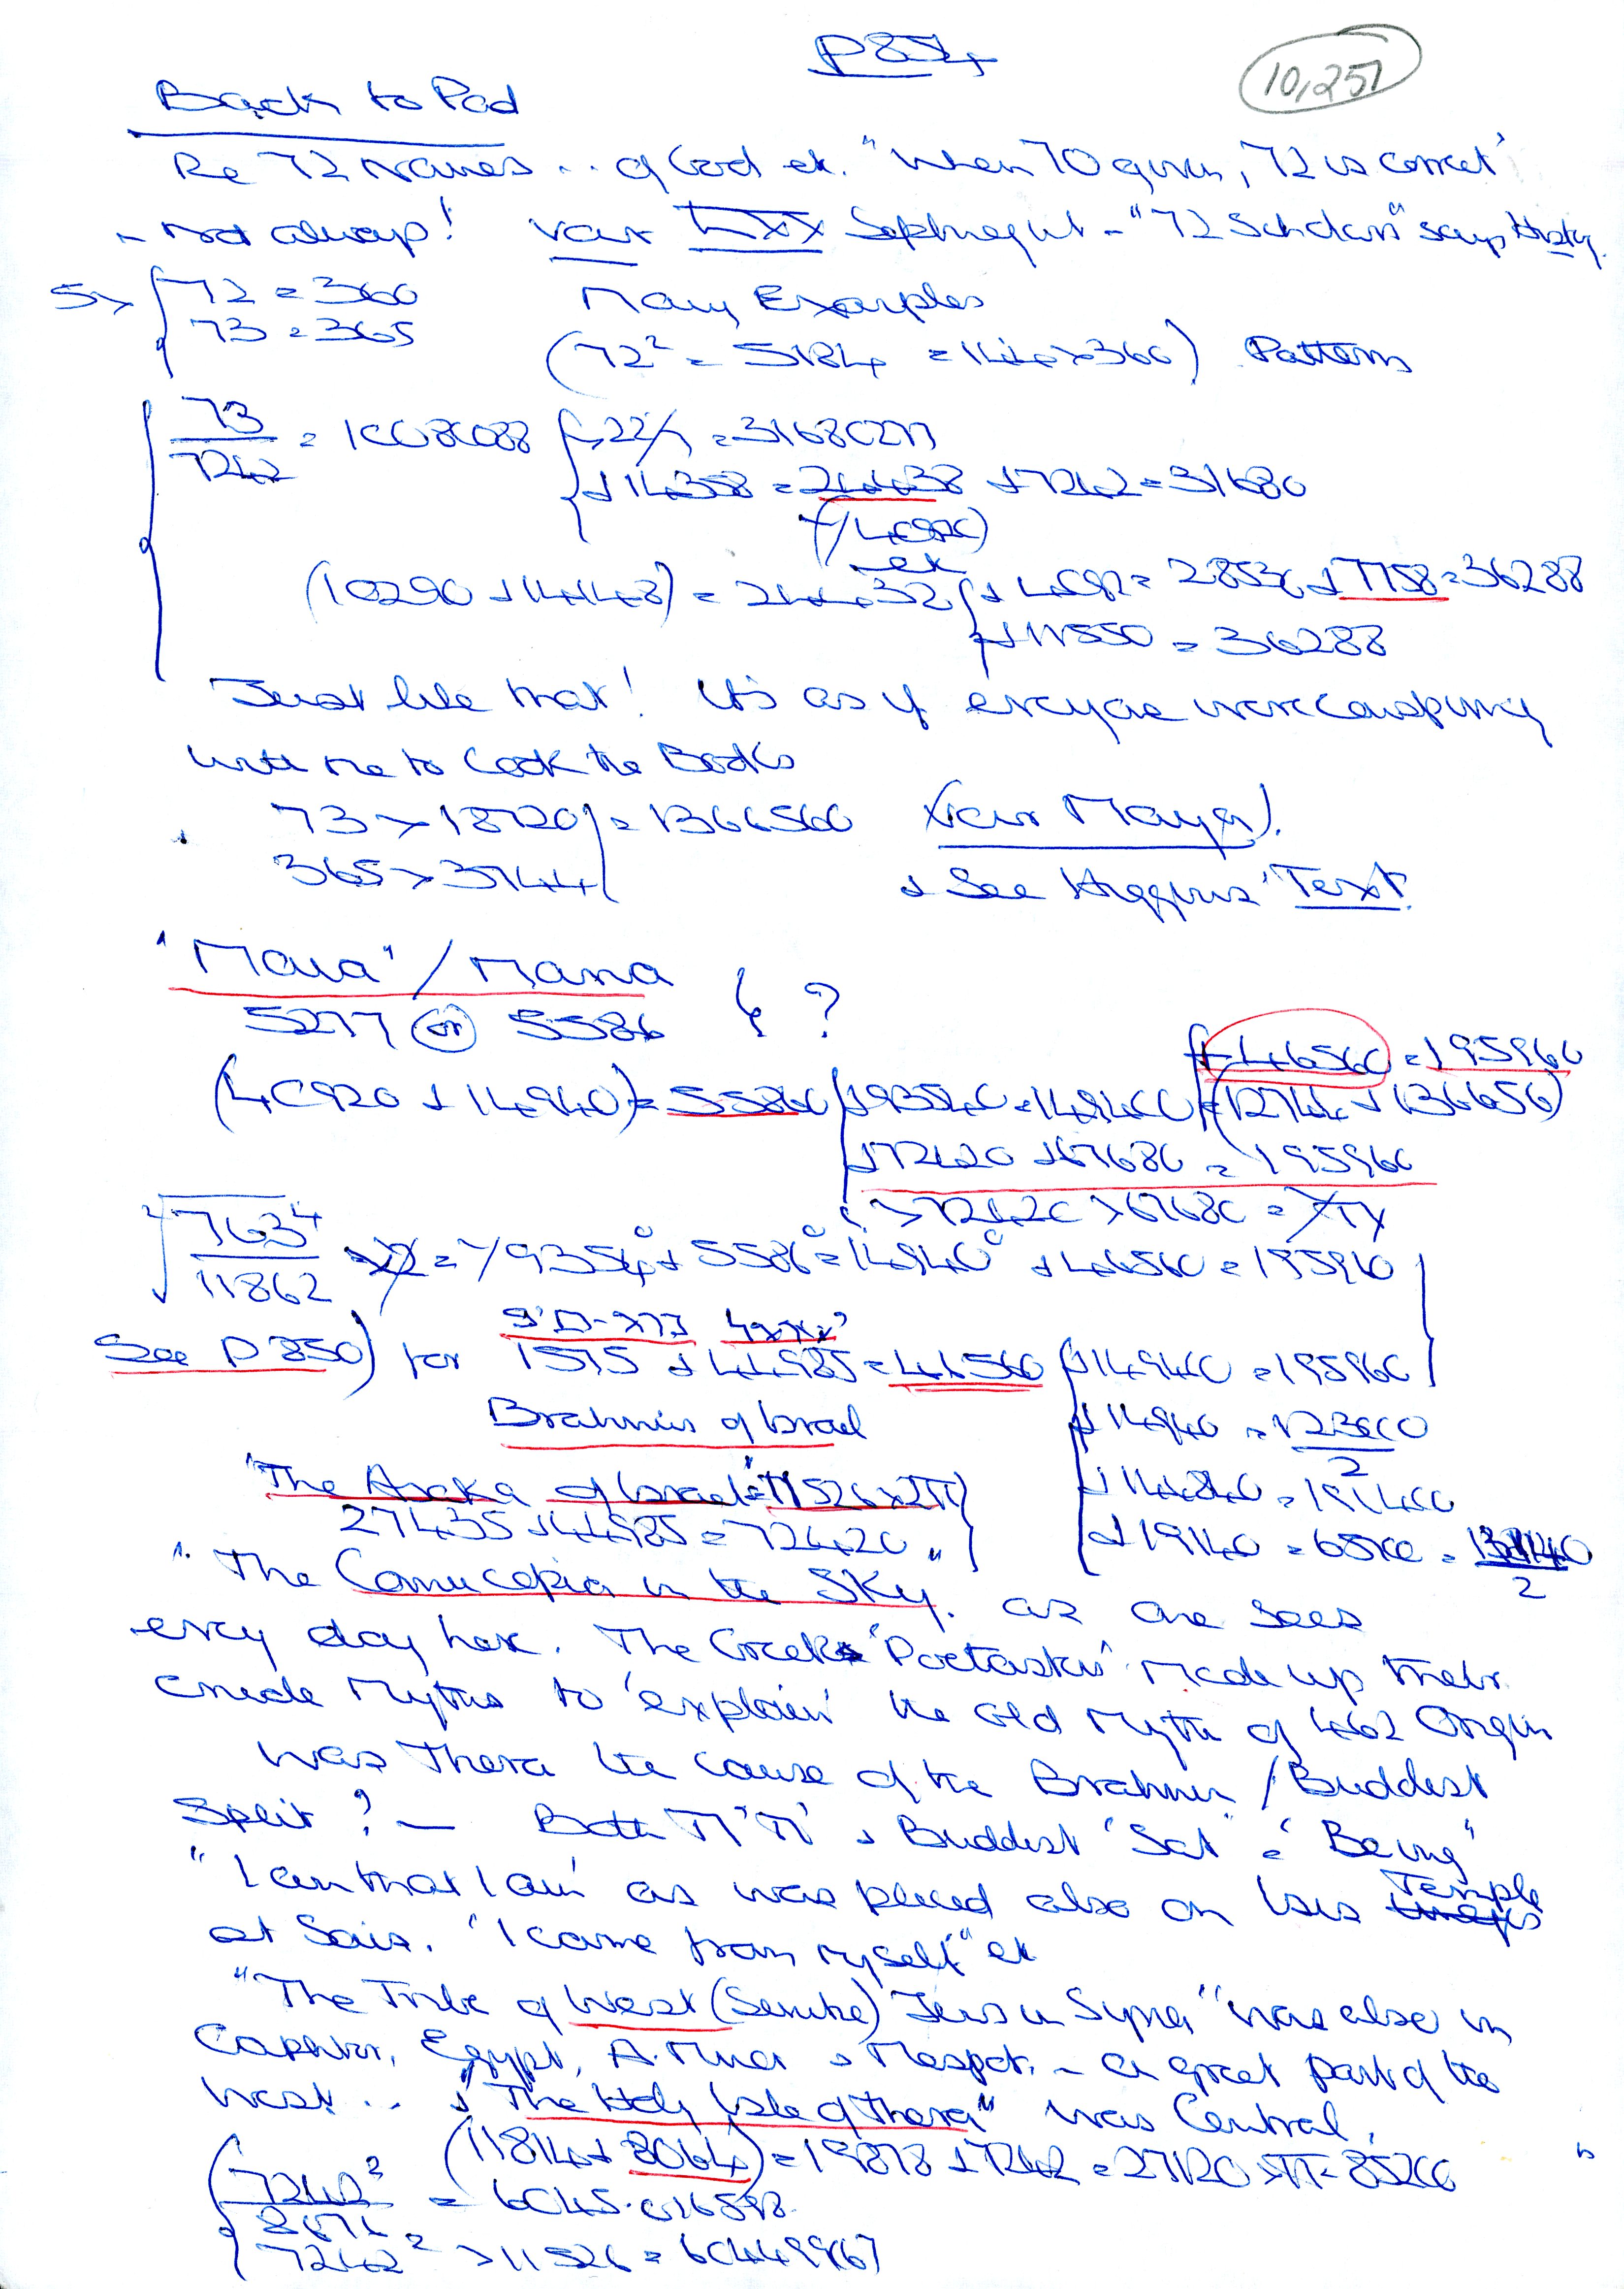 P854
10,257
Back to Pad
Re 72 Names .. of God etc. "When 70 given, 72 is correct"
- not always! var LXX Septuagint - "72 Scholars" says Histy.
5 > { 72 = 360 Many Examples
73 = 365 (72² = 5184 = 144 × 360) Pattern
73 / 7242 = 1008088 { × 22/7 = 3168027
+ 14358 = 24438 + 7242 = 31680
(/4092)
etc
(10290 + 14148) = 24438 { + 4092 = 28530 + 7758 = 36288
+ 11550 = 36288
Just like that! It's as if everyone were conspiring
with me to Cook the Books
73 × 18720 } = 1366560 (var Mayan).
365 × 3744 & See Higgins' Text.
"Maia" / Mana
5277 (or) 5586 { ?
+ 46560 = 195960
(40920 + 14940) = 55860 { + 93540 = 149400 = (12744 + 136656)
+ 72420 + 67680 = 195960
× 72420 × 67680 =
7634 / 11862 = 93540 + 55860 = 149400 + 46560 = 195960
See P 850) for 1575 + 44985 = 46560 { + 149400 = 195960
Brahmins of Israel + 14940 = 123000 / 2
"The Araka of Israel" = 11526 × 2π } + 144840 = 191400
27435 + 44985 = 72420 + 19140 = 65700 = 131400 / 2
"The Cornucopia in the Sky". as one sees
every day here. The Greek 'Poetasters' made up their
crude Myths to 'explain' the old Myth of 462 Origin
Was Thera the cause of the Brahmin / Buddest
Split? — Both & Buddest 'Sat' = 'Being"
"I am that I am' as was placed also on Isis Temple
at Sais. "I came from myself" etc
"The Tribe of West (Semite) Jews in Syria" was also in
Caphtor, Egypt, A. Minor & Mesopot. - a great part of the
West .. & "The Holy Isle of Thera" was Central.
(11814 + 8064) = 19878 + 7242 = 27120 × π = 85200
7242² / = 6045.016598
7242² × 11526 = 60449967